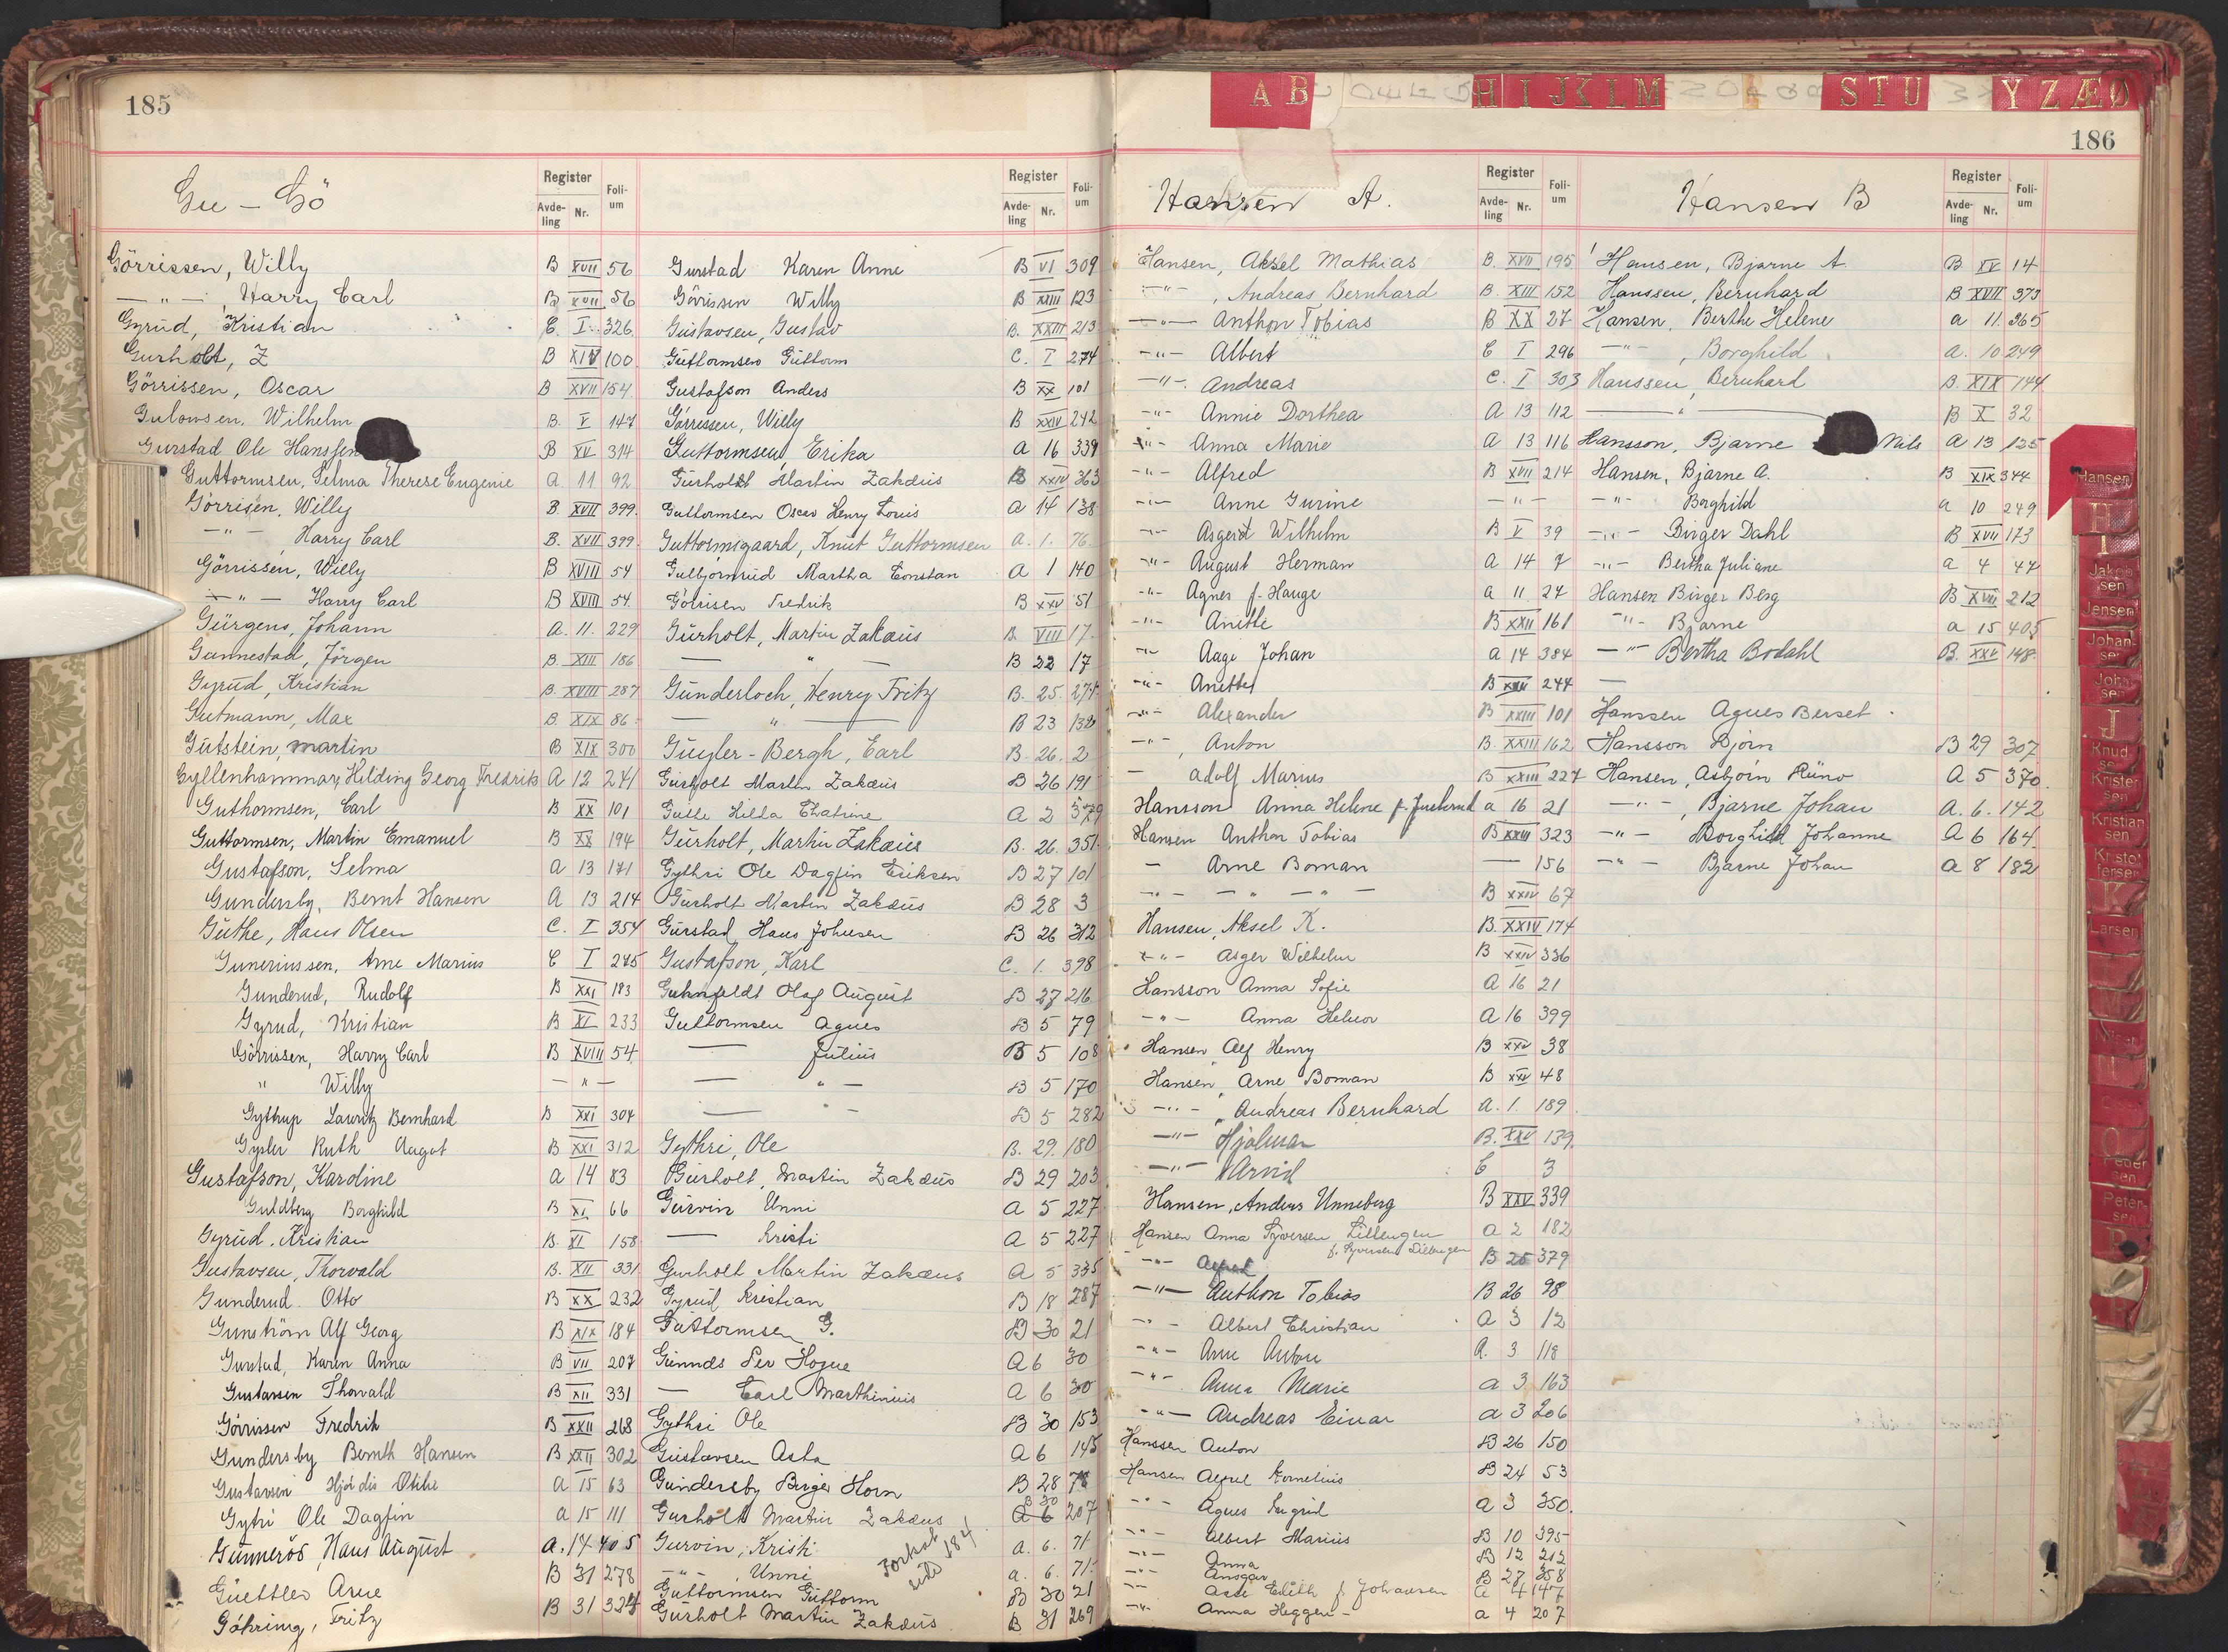 185
Gu – Gö
Register
Avde-ling Nr.
Foli-um
Görrissen, Willy B XVII 56
— " — , Harry Carl B XVII 56
Gyrud, Kristian C. I 326
Gurholt, Z B XIV 100
Görrissen, Oscar B XVII 154
Gulowsen, Wilhelm B. V 147
Gurstad Ole Hanssen B XV 314
Guttormsen, Selma Therese Eugenie A 11 92
Görrisen, Willy B XVII 399
— " — Harry Carl B. XVII 399
Görrissen, Willy B XVIII 54
— " — Harry Carl B XVIII 54
Gürgens, Johann A. 11. 229
Gunnestad, Jörgen B. XIII 156
Gyrud, Kristian B. XVIII 287
Gutmann, Max B. XIX 86
Gutstein, Martin B XIX 300
Gyllenhammar, Hilding Georg Fredrik A 12 241
Guthormsen, Carl B XX 101
Guttormsen, Martin Emanuel B XX 194
Gustafson, Selma A 13 171
Gundersby, Bernt Hansen A 13 214
Guthe, Hans Olsen C. I 354
Guneriussen, Arne Marius C I 275
Gunderud, Rudolf B XXI 193
Gyrud, Kristian B XI 233
Görrissen, Harry Carl B XVIII 54
" Willy — " —
Gyttrup Lauritz Bernhard B XXI 304
Gysler Ruth Aagot B XXI 312
Gustafson, Kardine A 14 83
Guldberg Borghild B XI 66
Gyrud, Kristian B. XI 158
Gustavsen, Thorvald B. XII 331
Gunderud Otto B XX 232
Gunström Alf Georg B XIX 184
Gurstad, Karen Anna B VII 207
Gustavsen Thorvald B XII 331
Görrissen Fredrik B XXII 268
Gundersby Bernth Hansen B XXII 302
Gustavsen Hjördis Otilie A 15 63
Gytri Ole Dagfin A 15 111
Gunneröd, Hans August A. 14 405
Guettler Arne B 31 278
Göhring, Fritz B 31 324
Register
Avde-ling Nr.
Foli-um
Gurstad Karen Anne B VI 309
Görrissen Willy B XXIII 123
Gustavsen, Gustav B. XXIII 213
Guttormsen Guttorm C. I 274
Gustafson Anders B XX 101
Görrissen, Willy B XXIV 242
Guttormsen, Erika A 16 339
Gurholt Martin Zakæus B XXIV 363
Guttormsen Oscar Henry Louis A 14 138
Guttormsgaard, Knut Guttormsen A. 1. 76
Gulbjörnrud Martha Constan A 1 140
Görrisen Fredrik B XXV 51
Gurholt, Martin Zakæus B. VIII 17
— " — B 22 17
Günderloch, Henry Fritz B. 25. 274
— " — B 23 132
Guyler-Bergh, Carl B. 26. 2
Gurholt Martin Zakæus B 26 191
Gulle Hilda Chatrine A 2 379
Gurholt, Martin Zakæus B. 26. 351
Gythri Ole Dagfin Eriksen B 27 101
Gurholt Martin Zakæus B 28 3
Gurstad, Hans Johnsen B 26 312
Gustafson, Karl C. 1. 398
Guhnfeldt Olaf August B 27 216
Guttormsen Agnes B 5 79
— Julius B 5 108
— " — B 5 170
— " — B 5 282
Gythri, Ole B. 29. 180
Gurholt, Martin Zakæus B 29 203
Gurvin Unni A 5 227
— Kristi A 5 227
Gurholt Martin Zakæus A 5 335
Gyrud Kristian B 18 287
Guttormsen G. B 30 21
Gunnæs Per Hogne A 6 30
— Carl Marthinius A 6 30
Gythri Ole B 30 153
Gustavsen Asta A 6 145
Gundersby Birger Horn B 28 78
Gurholt Martin Zakæus B 30 A 6 207
Gurvin, Kristi A. 6. 71
— " — , Unni A. 6. 71
Guttormsen Guttorm B 30 21
Gurholt Martin Zakæus B 31 269
Fortsat side 184
A B H I J K L M S T U Y Z Æ Ø
186
Hansen A.
Register
Avde-ling Nr.
Foli-um
Hansen, Aksel Mathias B. XVII 195
— " — , Andreas Bernhard B. XIII 152
— " — Anthon Tobias B XX 27
— " — Albert C I 296
— " — Andreas C. I 303
— " — Annie Dorthea A 13 112
— " — Anna Marie A 13 116
— " — Alfred B XVII 214
— " — Anne Gurine — " —
— " — Asgerd Wilhelm B V 39
— " — August Herman A 14 7
— " — Agnes f. Hauge A 11 24
— " — Anette B XXII 161
— " — Aage Johan A 14 384
— " — Anette B XXII 244
— " — Alexander B XXIII 101
— " — , Anton B. XXIII 162
— Adolf Marius B XXIII 227
Hansson Anna Helene f. A 16 21
Hansen Anthon Tobias B XXIII 323
— Arne Boman — 156
— " — " — " — B XXIV 67
Hansen, Aksel K. B. XXIV 174
— " — Asger Wilhelm B XXIV 336
Hansson Anna Sofie A 16 21
— " — Anna Helene A 16 399
Hansen, Alf Henry B XXV 38
Hansen, Arne Boman B XXV 48
— " — , Andreas Bernhard A. 1. 189
— " — Hjalmar B. XXV 139
— " — Arvid C 3
Hansen, Anders Unneberg B XXV 339
Hansen Anna Syversen Lillengen A 2 182
f. Syversen Lillengen
— " — Alfred B 25 379
— " — Anthon Tobias B 26 98
— " — Albert Christian A 3 12
— " — Arne Anton A. 3 118
— " — Anna Marie A 3 163
— " — Andreas Einar A 3 206
Hanssen Anton B 26 150
Hansen Alfred Kornelius B 24 53
— " — Agnes Ingrid A 3 350
— " — Albert Marius B 10 395
— " — Anna B 12 212
— " — Ansgar B 27 358
— " — Edith f. Johansen A 4 147
— " — Anna Heggen A 4 207
Hansen B
Register
Avde-ling Nr.
Foli-um
Hansen, Bjarne A. B IV 14
Hanssen, Bernhard B XVII 373
Hansen, Berthe Helene A 11. 365
— " — , Borghild A. 10 249
Hanssen, Bernhard B. XIX 144
— " — B X 32
Hansson, Bjarne Nils A 13 125
Hansen, Bjarne A. B XIX 344
— " — Borghild A 10 249
— " — Birger Dahl B XVII 173
— " — Bertha Juliane A 4 44
Hansen Birger Berg B XVIII 212
— " — Bjarne A 15 405
— " — Bertha Bodahl B. XXV 148
—
Hanssen Agnes Berset
Hansson Bjørn B 29 307
Hansen, Asbjörn Runo A 5 370
— " — , Bjarne Johan A. 6. 142
— " — Borghild Johanne A 6 164
— " — Bjarne Johan A 8 182
Hansen
H
I
Jakob sen
Jensen
Johan sen
John sen
J
Knud sen
Krister sen
Kristian sen
Kristof fersen
K
Larsen
Peder sen
Peter sen